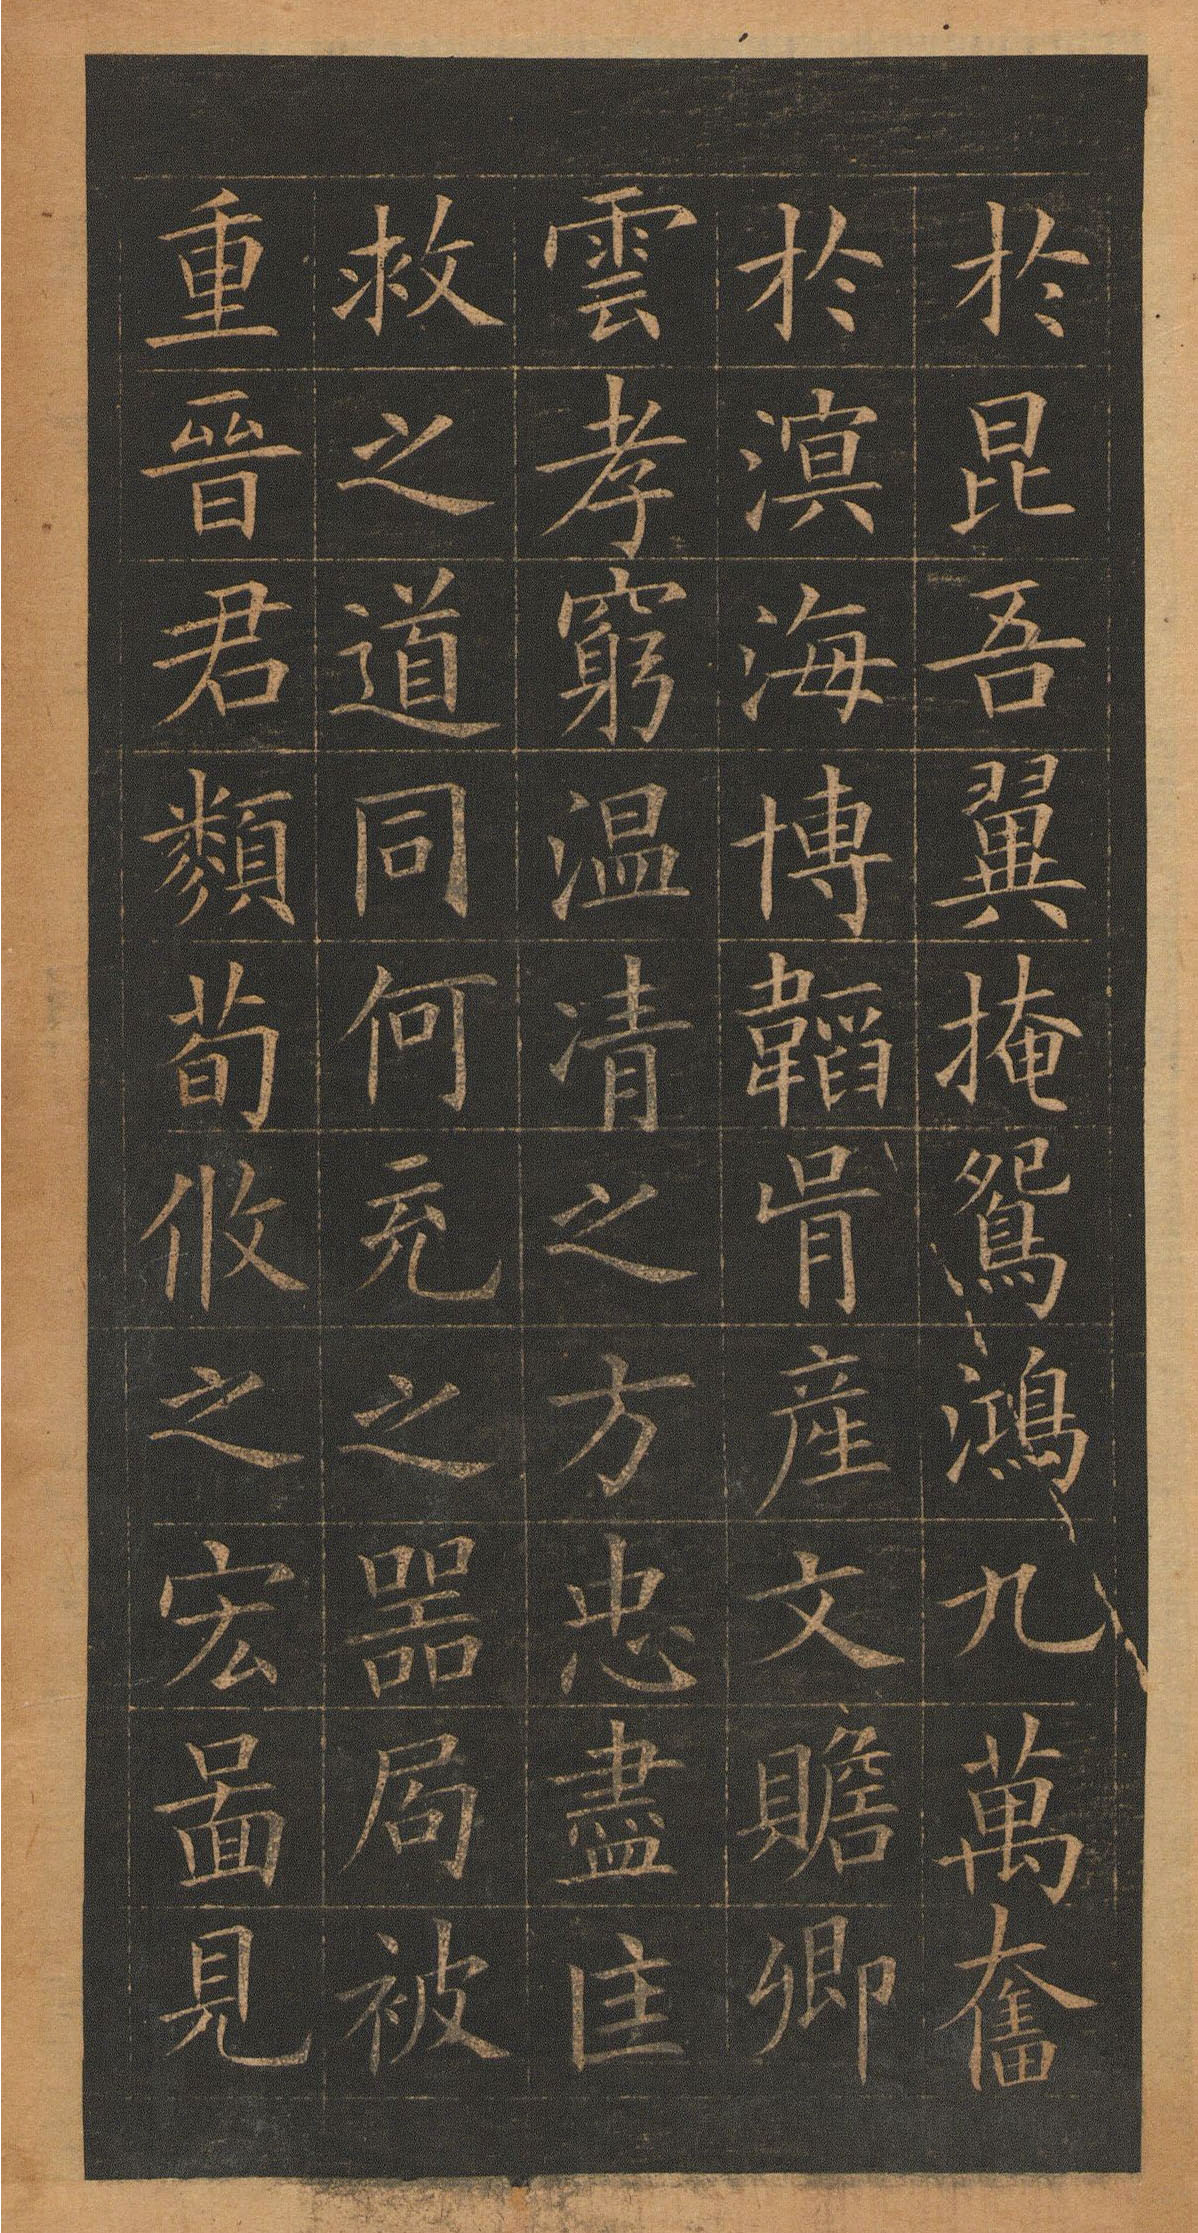 於昆吾翼掩鴛鴻九萬奮
於溟海博韜胥産文贍卿
雲孝窮温凊之方忠盡匡
救之道同何充之器局被
重晉君類荀攸之宏啚見